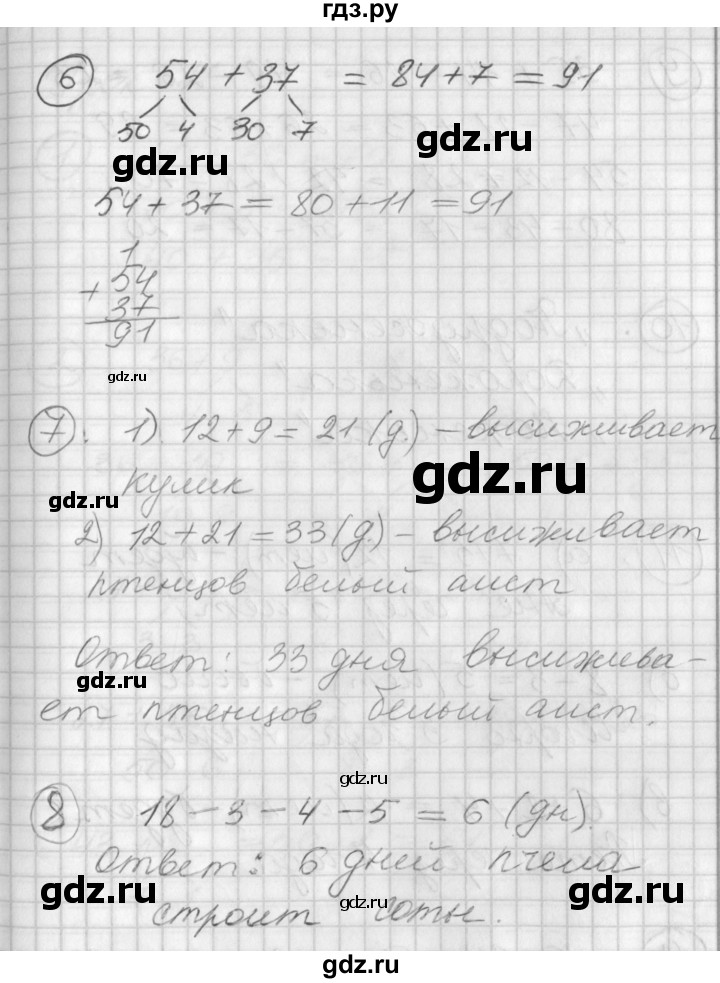 гдз.ру
6 54 + 37 = 84 + 7 = 91
50 4 30 7
gdz.ru
gdz.ru
54 + 37 = 80 + 11 = 91
1
+ 54
37
91
gdz.ru
7. 1). 12 + 9 = 21 (д.) – высиживает
gdz.ru
кулик
gdz.ru
2) 12 + 21 = 33 (д.) – высиживает
птенцов белый аист
Ответ: 33 дня высижива-
gdz.ru
ет птенцов белый аист.
gdz.ru
8 18 – 3 – 4 – 5 = 6 (дн).
Ответ: 6 дней пчела
gdz.ru
gdz.ru
gdz.ru
строит соты.
gdz.ru